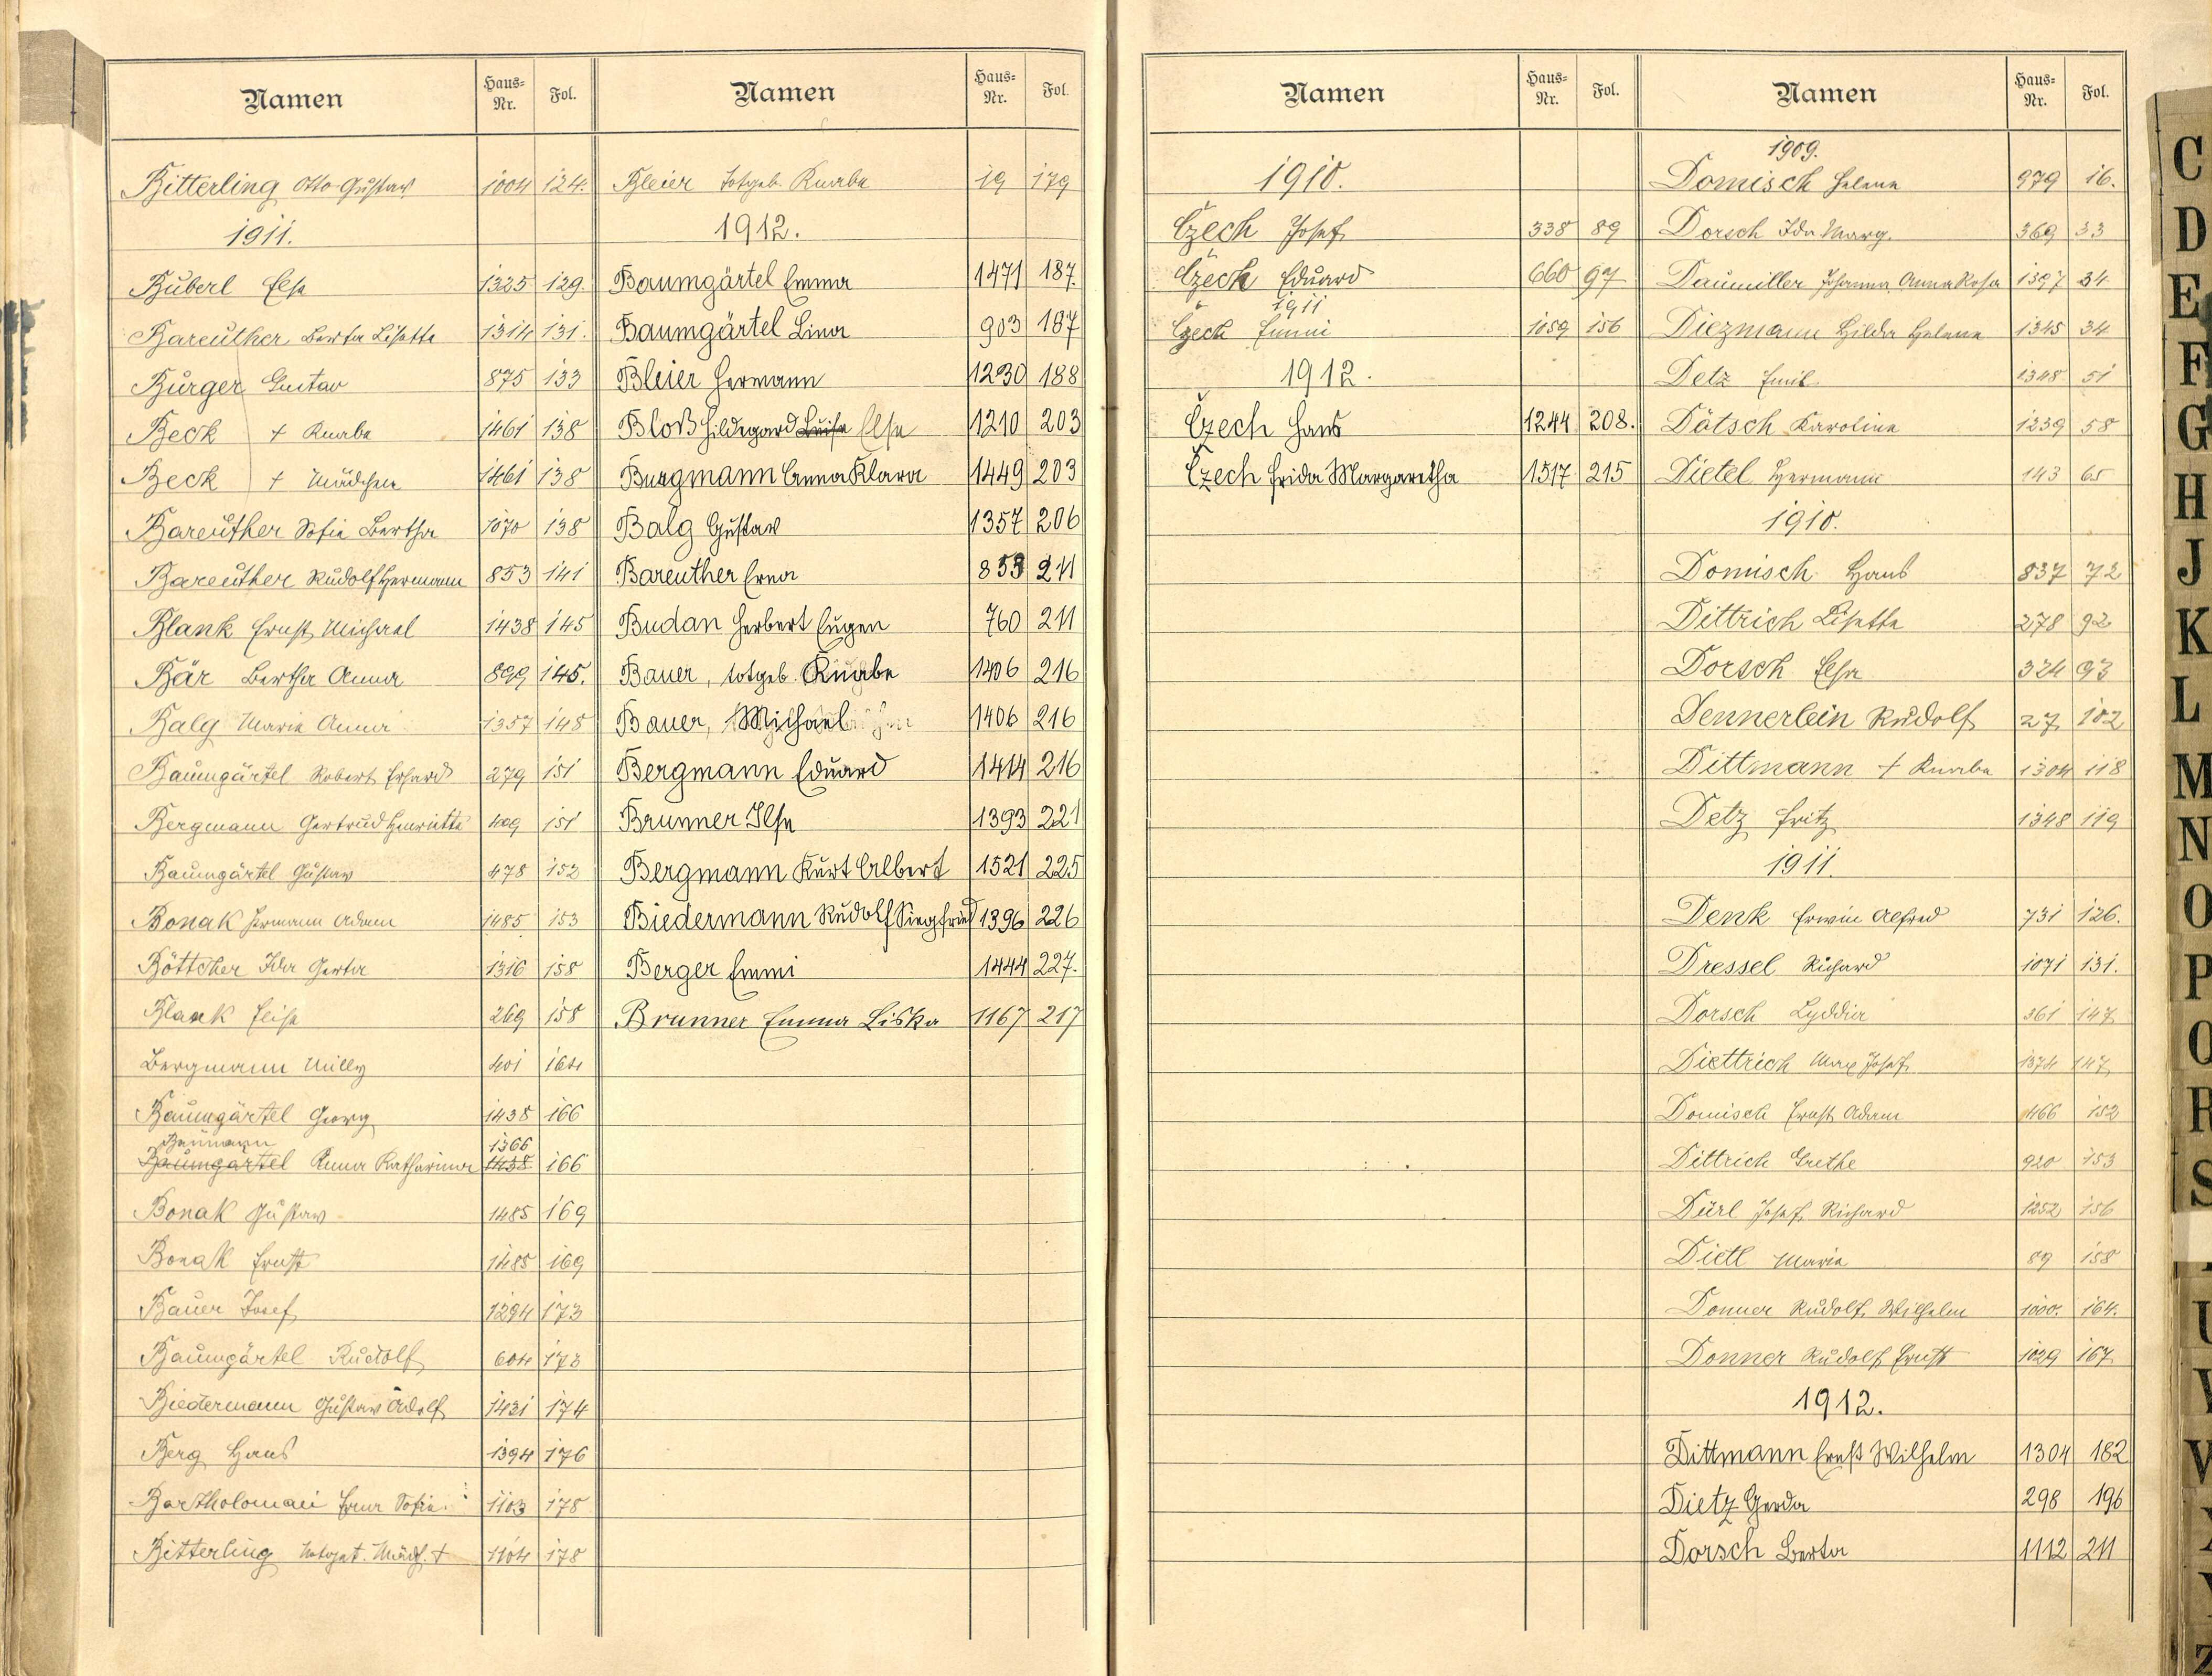 Namen Haus-Nr. Fol.
Bitterling Otto Gustav 1004 124.
1911.
Büberl Elsa 1325 129.
Bareuther Berta Lisette 1314 131.
Bürger Gustav 875 133
Beck + Knabe 1461 138
Beck + Mädchen 1461 138
Bareuther Sofie Bertha 1070 138
Bareuther Rudolf Hermann 853 141
Blank Ernst Michael 1438 145
Bär Bertha Anna 899 145.
Balg Maria Anna 1357 148
Baumgärtel Robert Erhard 279 151
Bergmann Gertrud Henriette 409 151
Baumgärtel Gustav 478 152
Bonak Hermann Adam 1485 153
Böttcher Ida Gerta 1316 158
Blank Elisa 269 158
Bergmann Milly 401 164
Baumgärtel Georg 1438 166
Baumann 1366
Baumgärtel Anna Katharina 1438 166
Bonak Gustav 1485 169
Bonak Ernst 1485 169
Bauer Josef 1294 173
Baumgärtel Rudolf 604 173
Biedermann Gustav Adolf 1431 174
Berg Hans 1394 176
Bartholomäi Erna Sofie. 1103 178
Bitterling totgeb. Mädch. + 1104 178
Namen Haus-Nr. Fol.
Bleier totgeb. Knabe 19 179
1912.
Baumgärtel Emma 1471 187.
Baumgärtel Lina 903 187
Bleier Hermann 1230 188
Bloß Hildegard Luise Elsa 1210 203
Bergmann Anna Klara 1449 203
Balg Gustav 1357 206
Bareuther Erna 853 211
Budan Herbert Eugen 760 211
Bauer, totgeb. Knabe 1406 216
Bauer, Michael 1406 216
Bergmann Eduard 1414 216
Brunner Ilse 1393 221
Bergmann Kurt Albert 1521 225
Biedermann Rudolf Siegfried 1396 226
Berger Emmi 1444 227.
Brunner Emma Liska 1167 217
Namen Haus-Nr. Fol.
1910.
Czech Josef 338 89
Czech Eduard 660 97
1911
Czech Emmi 1059 156
1912.
Czech Hans 1244 208.
Czech Frida Margaretha 1517 215
Namen Haus-Nr. Fol.
1909.
Domisch Helene 979 16.
Dorsch Ida Marg. 369 33
Daumiller Johanna Anna Rosa 1397 34
Diezmann Hilda Helene 1345 34
Detz Emil 1348 51
Dätsch Karoline 1239 58
Dietel Hermann 143 65
1910.
Domisch Hans 837 72
Dittrich Lisette 278 92
Dorsch Elsa 324 93
Dennerlein Rudolf 27 102
Dittmann + Knabe 1304 118
Detz Fritz 1348 119
1911.
Denk Erwin Alfred 731 126.
Dressel Richard 1071 131.
Dorsch Lyddia 361 147
Diettrich Max Josef 1374 147
Domisch Ernst Adam 466 152
Dittrich Grethe 920 153
Dürl Josef Richard 1252 156
Dietl Maria 89 158
Donner Rudolf Wilhelm 1000. 164.
Donner Rudolf Ernst 1029 167
1912.
Dittmann Ernst Wilhelm 1304 182
Dietz Gerda 298 196
Dorsch Berta 1112 211
C
D
E
F
G
H
J
K
L
M
N
O
P
Q
R
S
U
V
W